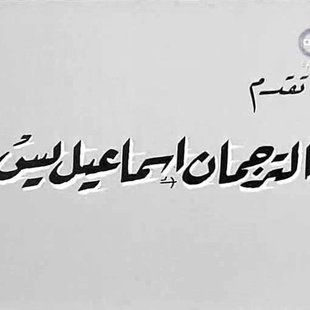 تقدم
الترجمان إسماعيل يس